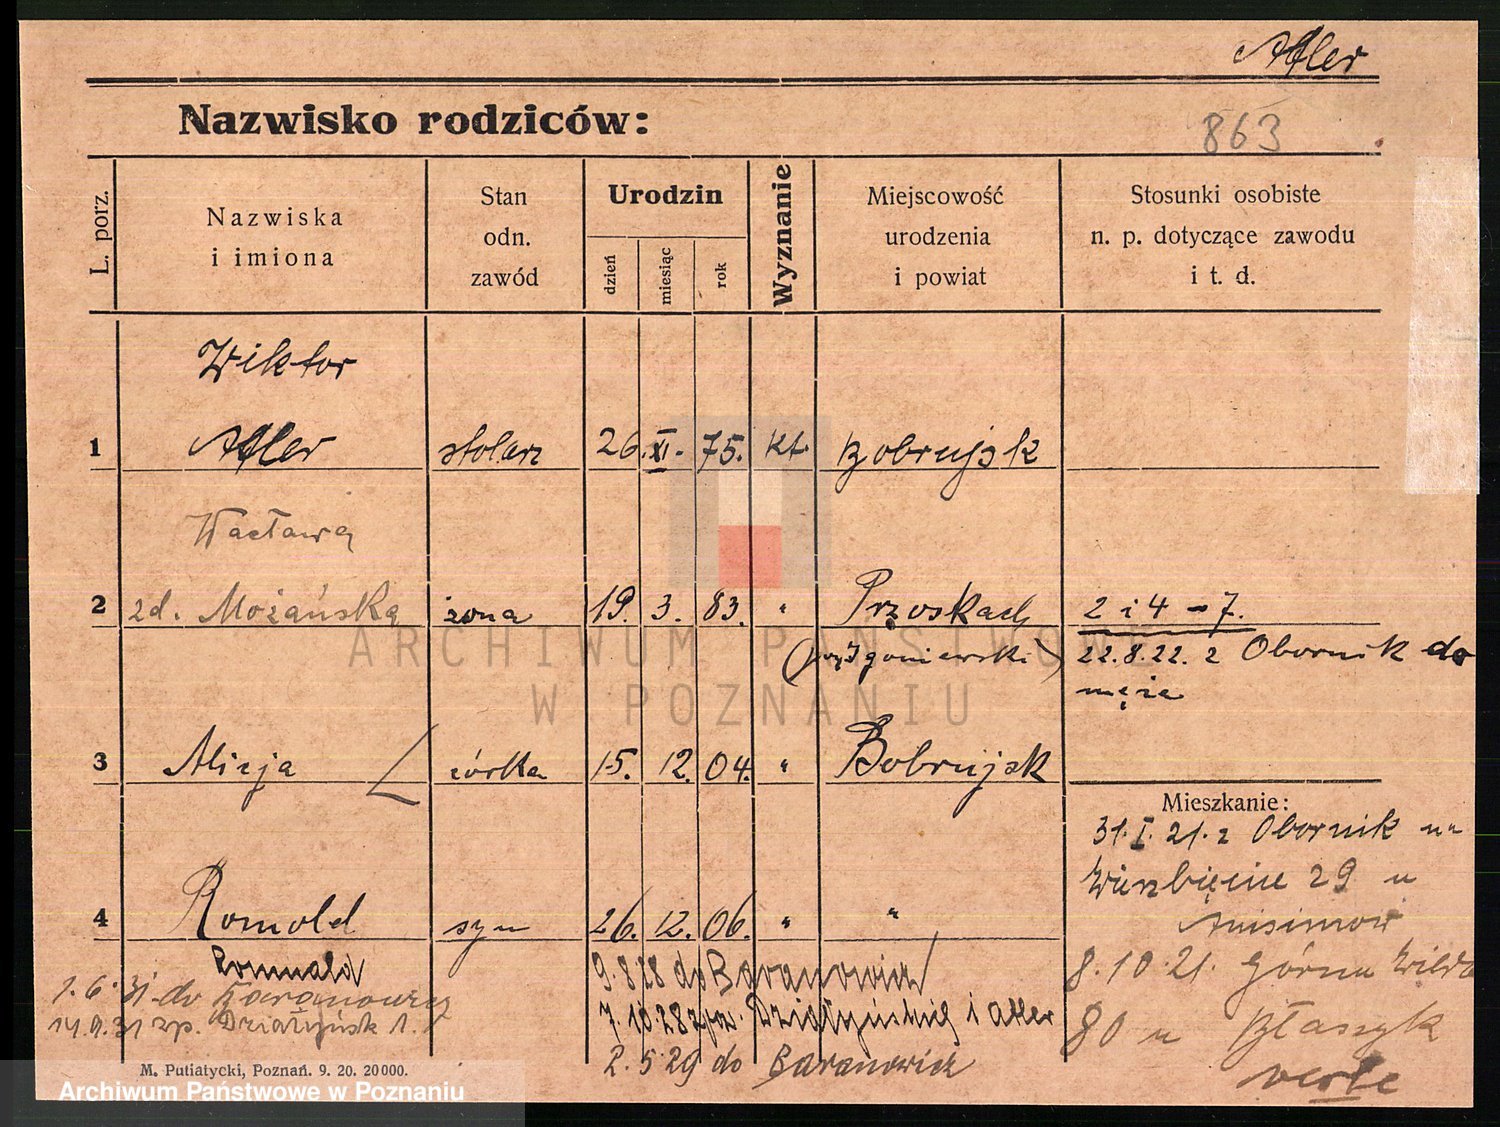 Adler
Nazwisko rodziców:
863
L. porz.
Nazwiska
i imiona
Stan
odn.
zawód
Urodzin
dzień
miesiąc
rok
Wyznanie
Miejscowość
urodzenia
i powiat
Stosunki osobiste
n. p. dotyczące zawodu
i t. d.
Wiktor
1 Adler stolarz 26. XI. 75. kt. Bobrujsk
Wacława
2 zd. Możańska żona 19. 3. 83. " 2 i 4 - 7.
22.8.22. z Obornik do
męża
3 Alicja córka 15. 12. 04. " Bobrujsk
Mieszkanie:
31. I. 21. z Obornik na
Wierzbięcice 29 u
Anisimow
4 Romold syn 26. 12. 06. " "
Romuald
8.10.21. Górna Wilda
80 u Błaszyk
verte
9.8.28 do Baranowicz
7.10.28 Działyńskich i Adler
2.5.29 do Baranowicz
1.6.31. do Baranowicz
14.9.31 zp. Działyńsk 1.
M. Putiatycki, Poznań. 9. 20. 20000.
ARCHIWUM PAŃSTWOWE
W POZNANIU
Archiwum Państwowe w Poznaniu